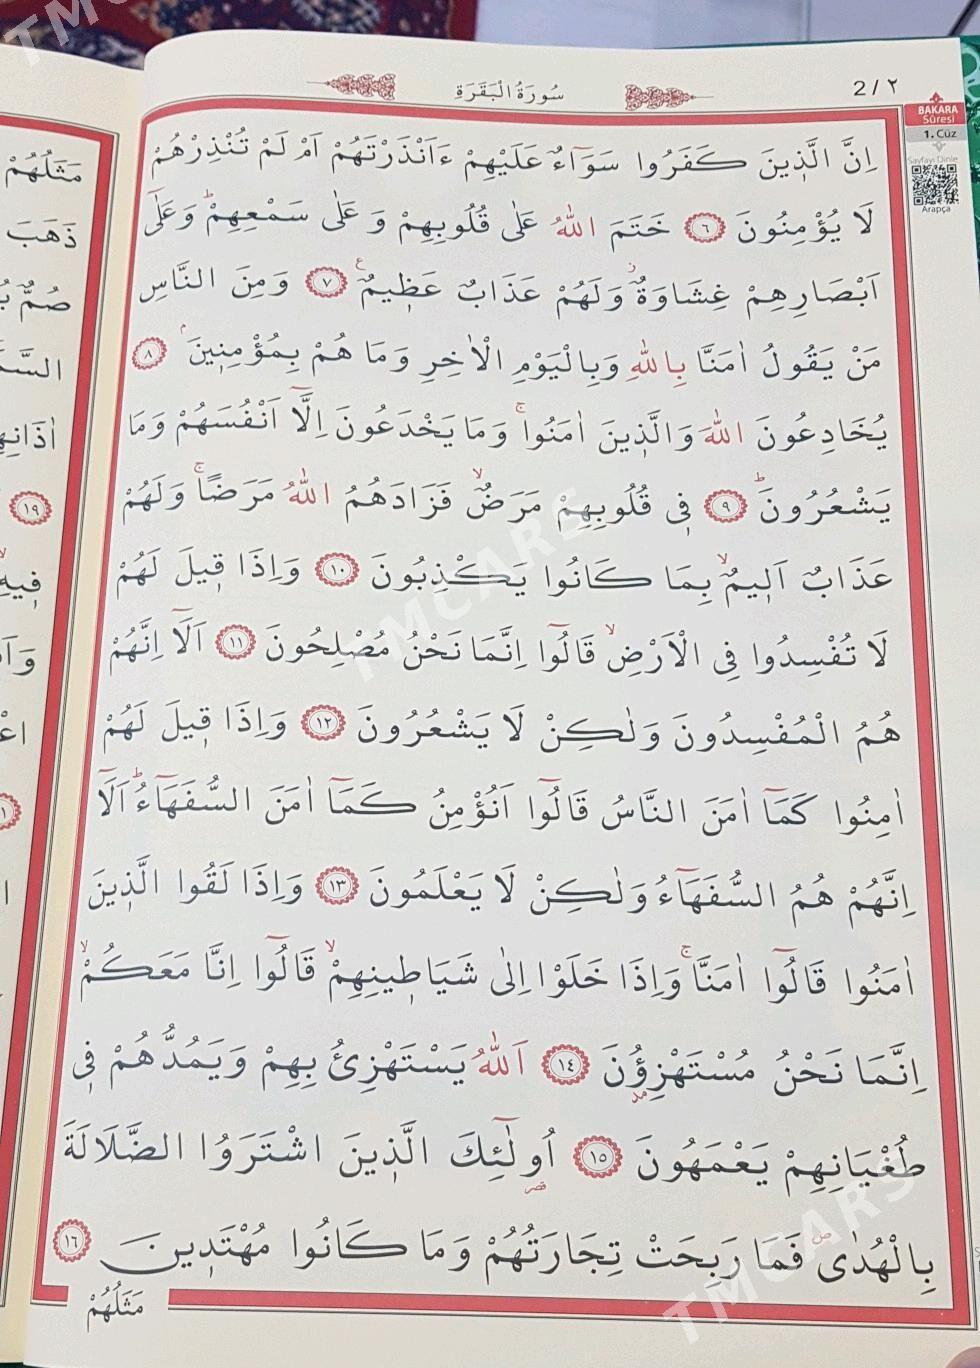 سُورَةُ الْبَقَرَةِ
2/٢
BAKARA
Sûresi
1. Cüz
Sayfayı Dinle
Arapça
اِنَّ الَّذ۪ينَ كَفَرُوا سَوَٓاءٌ عَلَيْهِمْ ءَاَنْذَرْتَهُمْ اَمْ لَمْ تُنْذِرْهُمْ
لَا يُؤْمِنُونَ ٦ خَتَمَ اللّٰهُ عَلٰى قُلُوبِهِمْ وَعَلٰى سَمْعِهِمْۜ وَعَلٰٓى
اَبْصَارِهِمْ غِشَاوَةٌۘ وَلَهُمْ عَذَابٌ عَظ۪يمٌ ٧ وَمِنَ النَّاسِ
مَنْ يَقُولُ اٰمَنَّا بِاللّٰهِ وَبِالْيَوْمِ الْاٰخِرِ وَمَا هُمْ بِمُؤْمِن۪ينَۢ ٨
يُخَادِعُونَ اللّٰهَ وَالَّذ۪ينَ اٰمَنُواۚ وَمَا يَخْدَعُونَ اِلَّٓا اَنْفُسَهُمْ وَمَا
يَشْعُرُونَۜ ٩ ف۪ي قُلُوبِهِمْ مَرَضٌۙ فَزَادَهُمُ اللّٰهُ مَرَضًاۚ وَلَهُمْ
عَذَابٌ اَل۪يمٌۙ بِمَا كَانُوا يَكْذِبُونَ ١٠ وَاِذَا ق۪يلَ لَهُمْ
لَا تُفْسِدُوا فِي الْاَرْضِۙ قَالُٓوا اِنَّمَا نَحْنُ مُصْلِحُونَ ١١ اَلَٓا اِنَّهُمْ
هُمُ الْمُفْسِدُونَ وَلٰكِنْ لَا يَشْعُرُونَ ١٢ وَاِذَا ق۪يلَ لَهُمْ
اٰمِنُوا كَمَٓا اٰمَنَ النَّاسُ قَالُٓوا اَنُؤْمِنُ كَمَٓا اٰمَنَ السُّفَهَٓاءُۜ اَلَٓا
اِنَّهُمْ هُمُ السُّفَهَٓاءُ وَلٰكِنْ لَا يَعْلَمُونَ ١٣ وَاِذَا لَقُوا الَّذ۪ينَ
اٰمَنُوا قَالُٓوا اٰمَنَّاۚ وَاِذَا خَلَوْا اِلٰى شَيَاط۪ينِهِمْۙ قَالُٓوا اِنَّا مَعَكُمْۙ
اِنَّمَا نَحْنُ مُسْتَهْزِؤُ۫نَ ١٤ اَللّٰهُ يَسْتَهْزِئُ بِهِمْ وَيَمُدُّهُمْ ف۪ي
طُغْيَانِهِمْ يَعْمَهُونَ ١٥ اُو۬لٰٓئِكَ الَّذ۪ينَ اشْتَرَوُا الضَّلَالَةَ
بِالْهُدٰىۖ فَمَا رَبِحَتْ تِجَارَتُهُمْ وَمَا كَانُوا مُهْتَد۪ينَ ١٦
مَثَلُهُمْ
مَثَلُهُمْ
ذَهَبَ
صُمٌّ
١٩
TMCARS
TMCARS
TMCARS